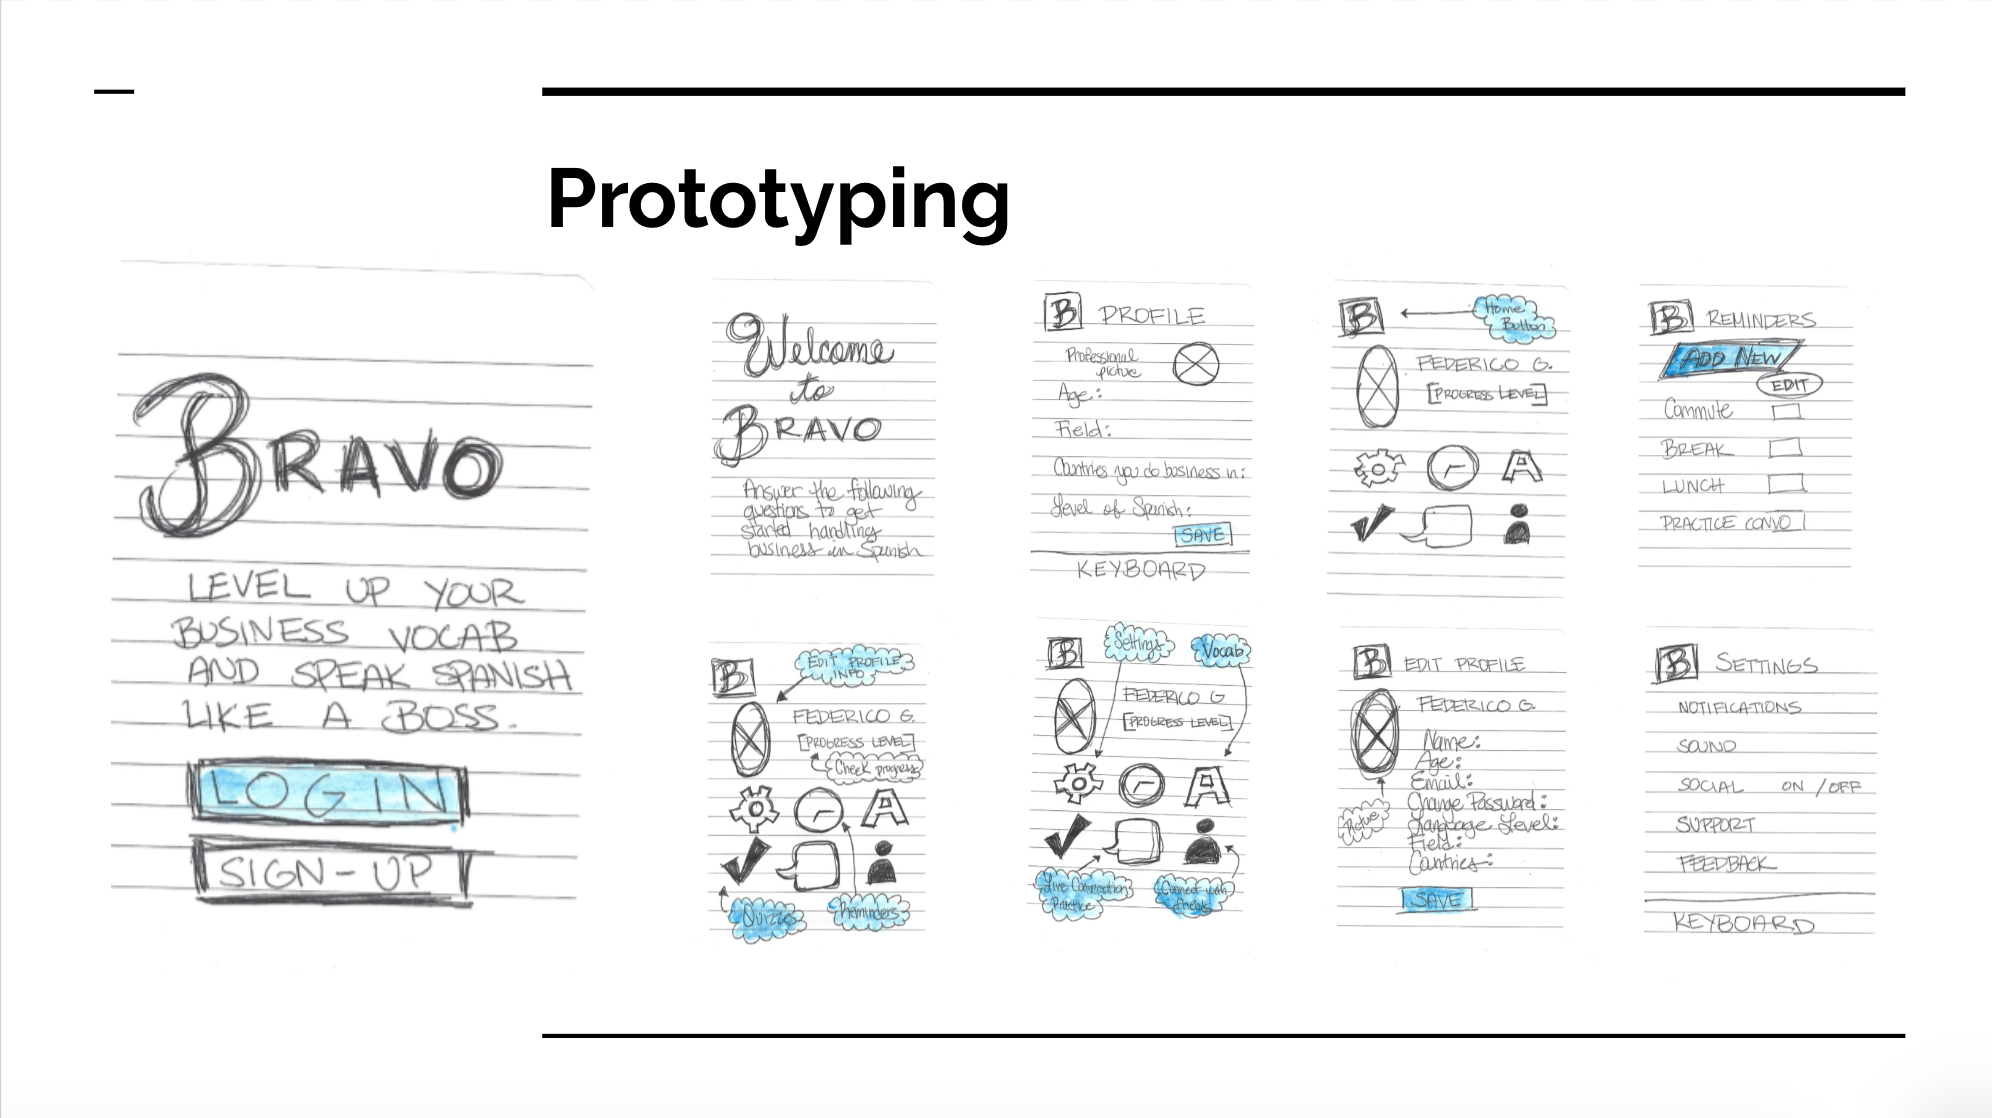 Prototyping
BRAVO
LEVEL UP YOUR
BUSINESS VOCAB
AND SPEAK SPANISH
LIKE A BOSS.
LOGIN
SIGN-UP
Welcome
to
BRAVO
Answer the following
questions to get
started handling
business in Spanish
B PROFILE
Professional
picture
Age:
Field:
Countries you do business in:
Level of Spanish:
SAVE
KEYBOARD
B
Home
Button
FEDERICO G.
[PROGRESS LEVEL]
A
B REMINDERS
ADD NEW
EDIT
Commute
BREAK
LUNCH
PRACTICE CONVO
B
EDIT PROFILE
INFO
FEDERICO G.
[PROGRESS LEVEL]
Check progress
A
Quizzes
Reminders
B
Settings
Vocab
FEDERICO G
[PROGRESS LEVEL]
A
Live Conversation
Practice
Connect with
B EDIT PROFILE
FEDERICO G.
Name:
Age:
Email:
Change Password:
Picture
Language Level:
Field:
Countries:
SAVE
B SETTINGS
NOTIFICATIONS
SOUND
SOCIAL ON / OFF
SUPPORT
FEEDBACK
KEYBOARD